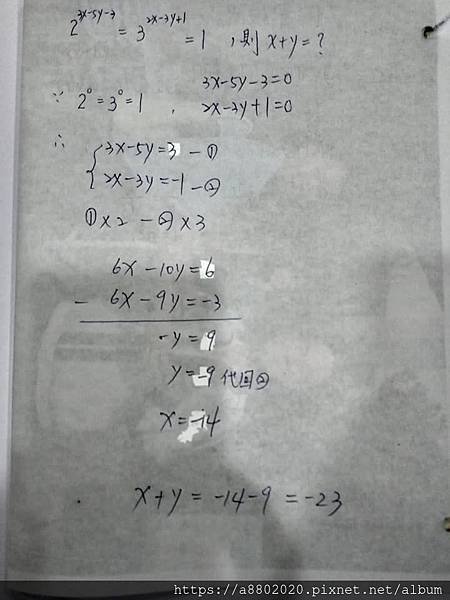 2^{3x-5y-3} = 3^{2x-3y+1} = 1 , 則 x+y = ?
∵ 2⁰ = 3⁰ = 1 , 3x-5y-3=0
2x-3y+1=0
∴ { 3x-5y=3 - ①
2x-3y=-1 - ②
① x2 - ② x3
6x -10y = 6
- 6x - 9y = -3
-y = 9
y = -9 代回②
x = -14
x+y = -14-9 = -23
https://a8802020.pixnet.net/album